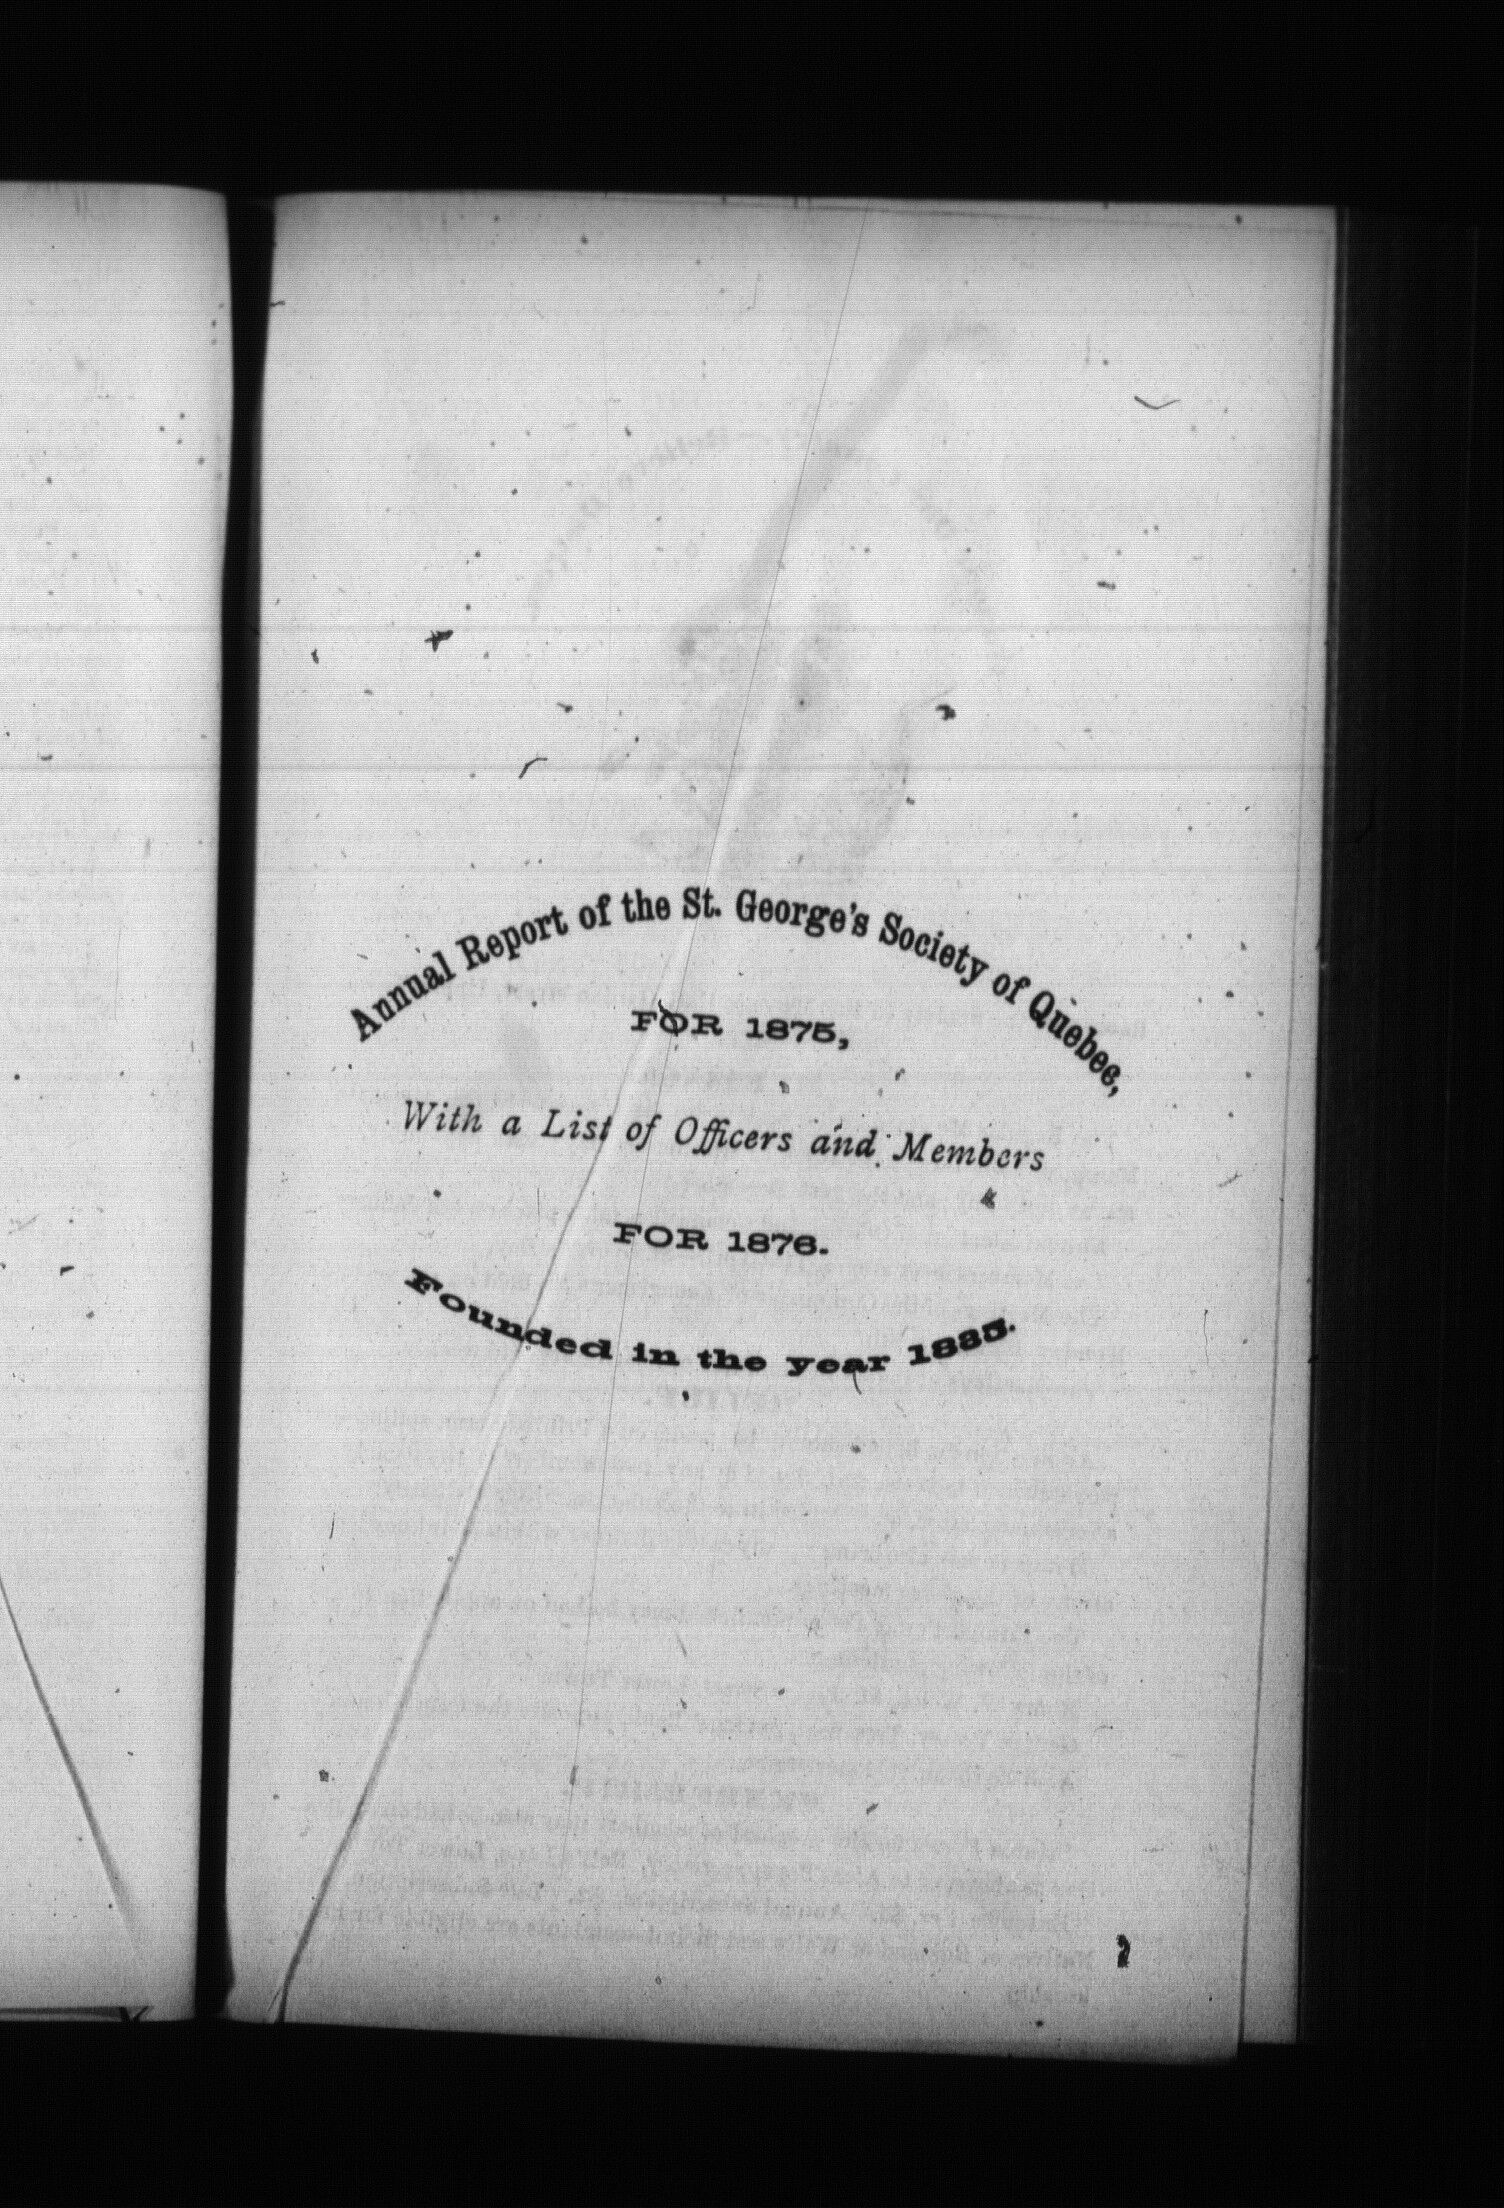 Annual Report of the St. George's Society of Quebec,
FOR 1875,
With a List of Officers and Members
FOR 1876.
Founded in the year 1835.